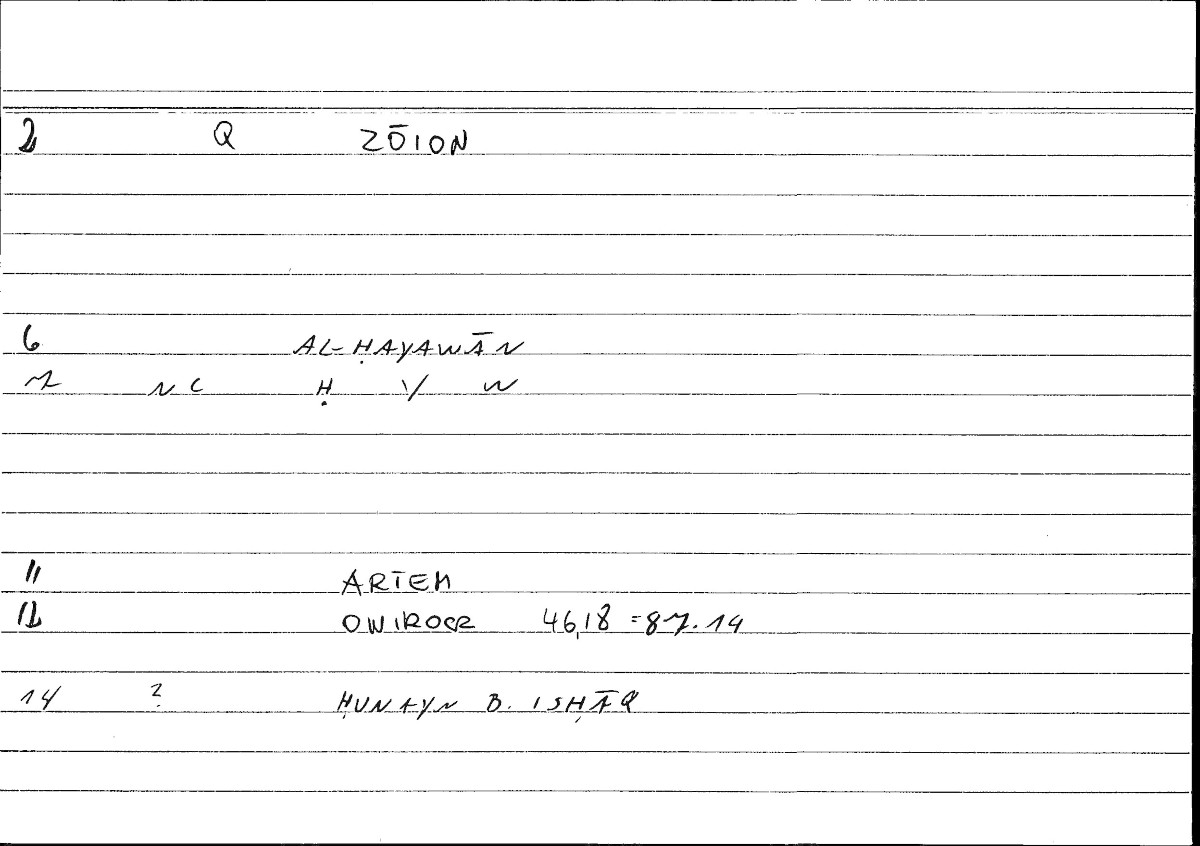 2 Q ZŌION
6 AL-ḤAYAWĀN
7 NC Ḥ Y W
11 ARTEM
12 ONIROCR 46,18 = 87.14
14 ? ḤUNAYN B. ISḤĀQ